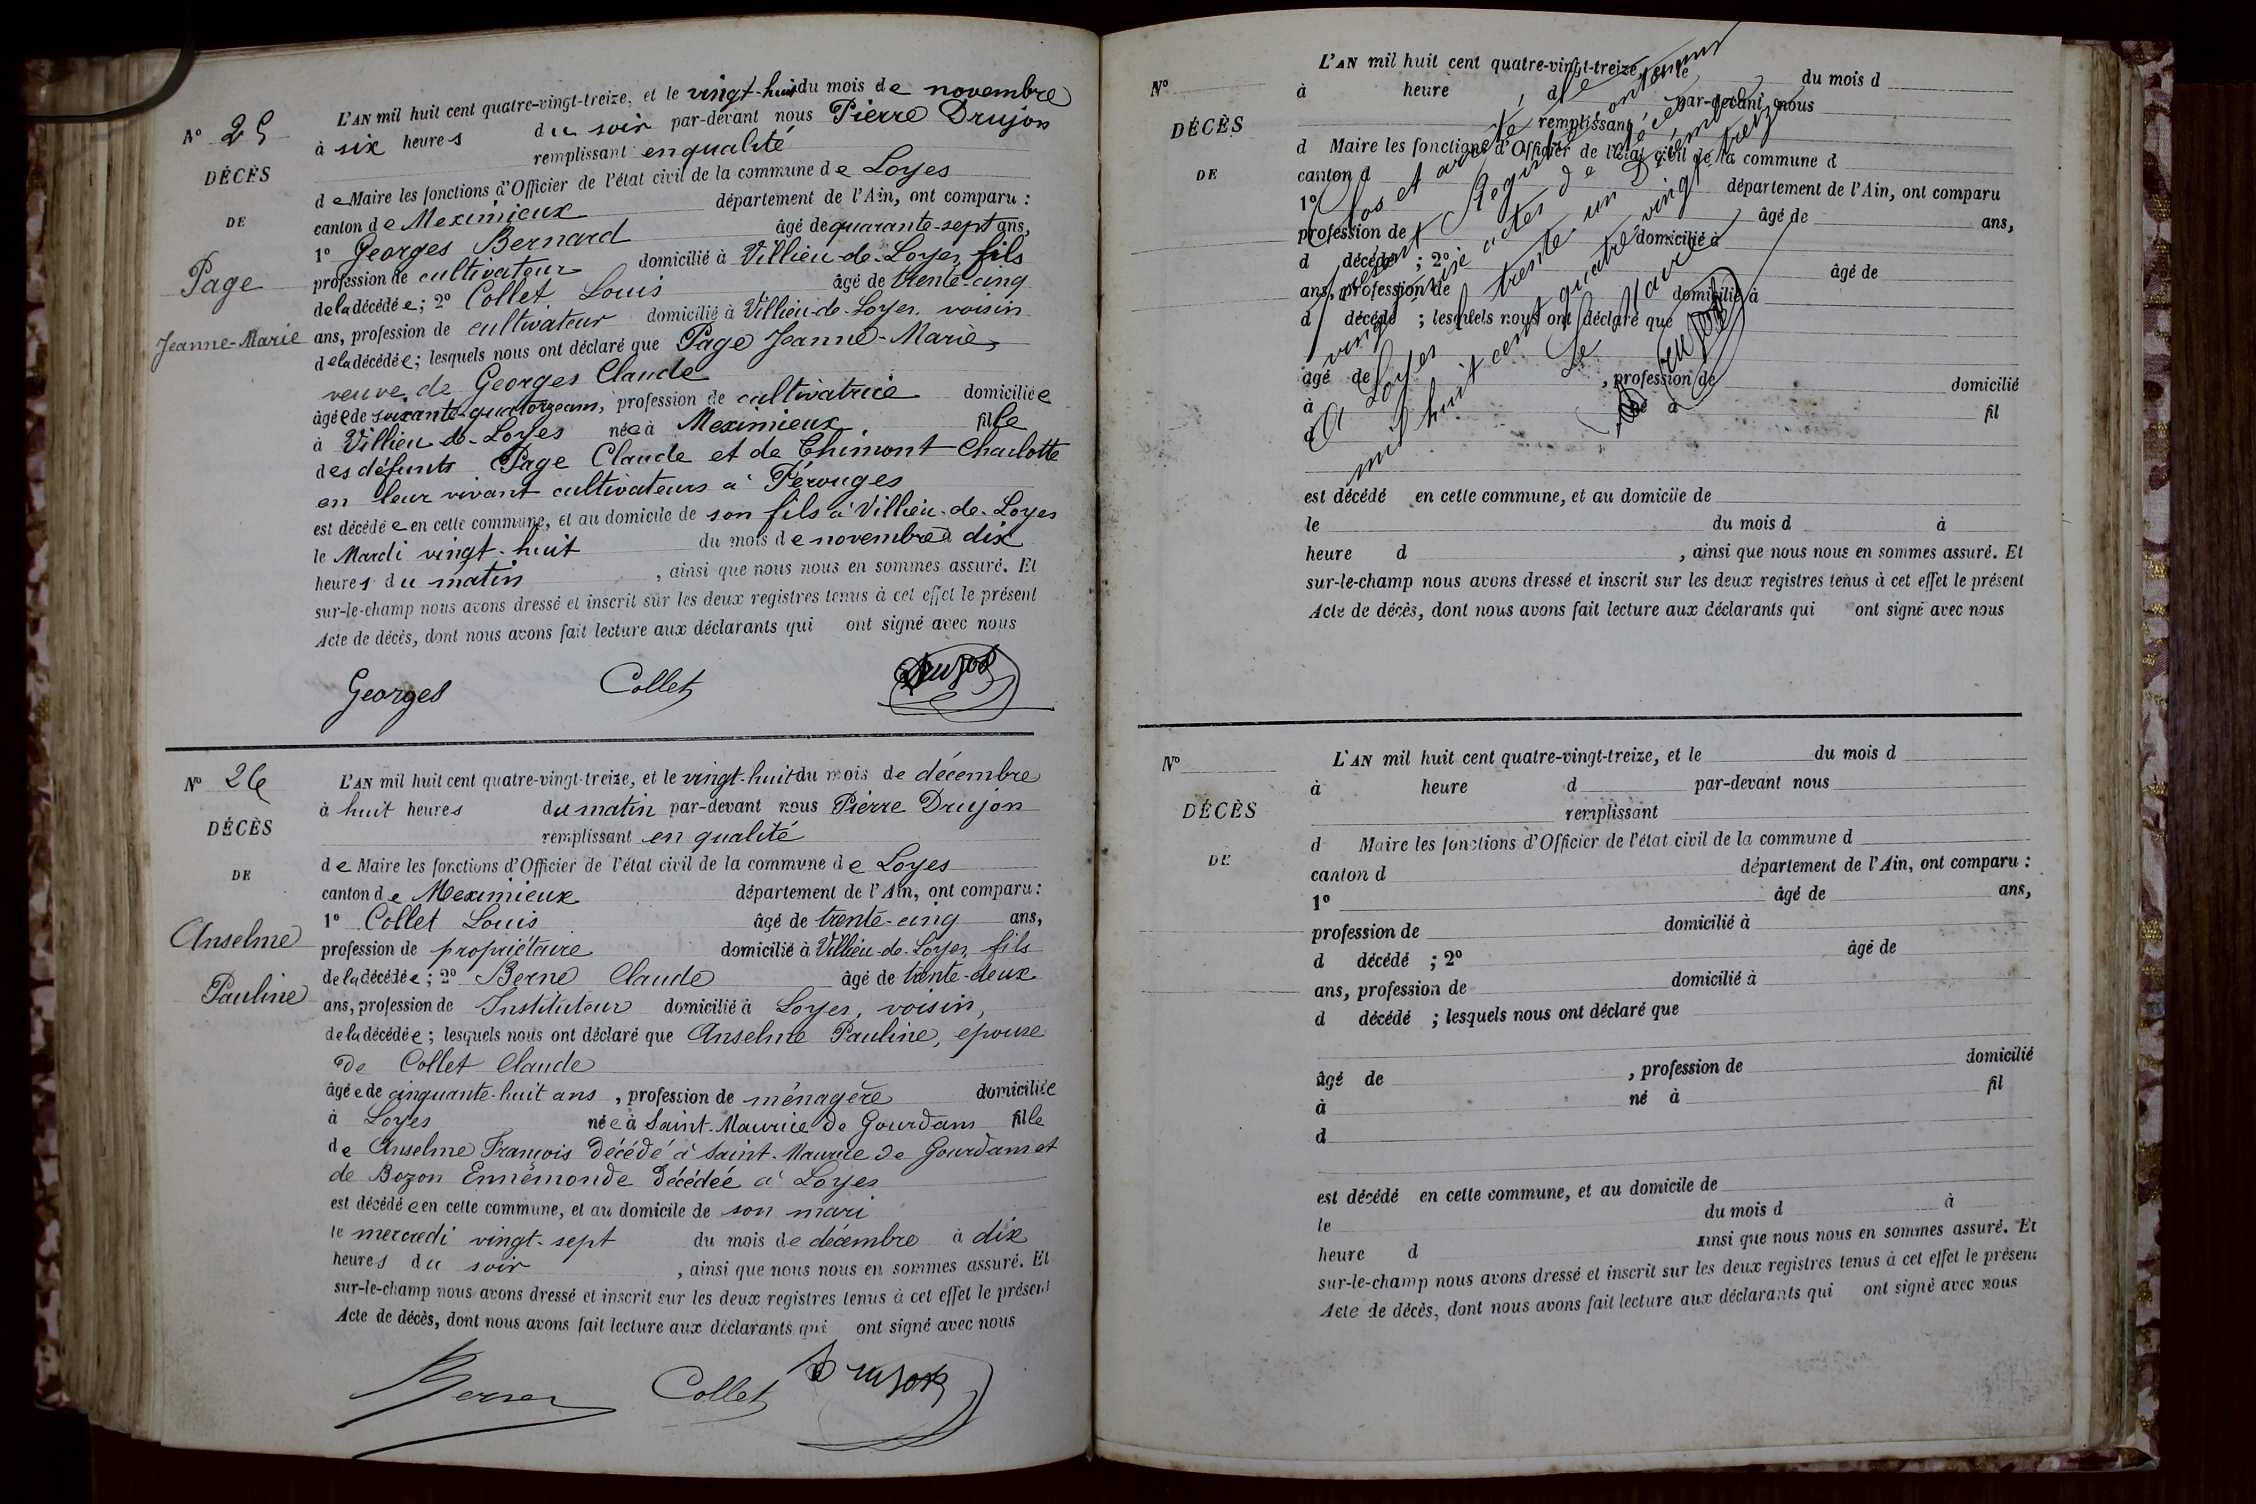 N° 25
DÉCÈS
DE
Page
Jeanne-Marie
L'AN mil huit cent quatre-vingt-treize, et le vingt-huit du mois de novembre
à six heures du soir par-devant nous Pierre Drujon
remplissant en qualité
de Maire les fonctions d'Officier de l'état civil de la commune de Loyes
canton de Meximieux département de l'Ain, ont comparu :
1° Georges Bernard âgé de quarante-sept ans,
profession de cultivateur domicilié à Villieu-de-Loyes, fils
de la décédée ; 2° Collet Louis âgé de trente-cinq
ans, profession de cultivateur domicilié à Villieu-de-Loyes, voisin
de la décédée ; lesquels nous ont déclaré que Page Jeanne-Marie,
veuve de Georges Claude
âgée de soixante-quatorze ans, profession de cultivatrice domiciliée
à Villieu-de-Loyes née à Meximieux, fille
des défunts Page Claude et de Thimont Charlotte
en leur vivant cultivateurs à Pérouges
est décédée en cette commune, et au domicile de son fils à Villieu-de-Loyes
le Mardi vingt-huit du mois de novembre à dix
heures du matin , ainsi que nous nous en sommes assuré. Et
sur-le-champ nous avons dressé et inscrit sur les deux registres tenus à cet effet le présent
Acte de décès, dont nous avons fait lecture aux déclarants qui ont signé avec nous
Georges Collet Drujon
N° 26
DÉCÈS
DE
Anselme
Pauline
L'AN mil huit cent quatre-vingt-treize, et le vingt-huit du mois de décembre
à huit heures du matin par-devant nous Pierre Drujon
remplissant en qualité
de Maire les fonctions d'Officier de l'état civil de la commune de Loyes
canton de Meximieux département de l'Ain, ont comparu :
1° Collet Louis âgé de trente-cinq ans,
profession de propriétaire domicilié à Villieu-de-Loyes, fils
de la décédée ; 2° Berne Claude âgé de trente-deux
ans, profession de Instituteur domicilié à Loyes, voisin,
de la décédée ; lesquels nous ont déclaré que Anselme Pauline, épouse
de Collet Claude
âgée de cinquante-huit ans , profession de ménagère domiciliée
à Loyes née à Saint-Maurice de Gourdans fille
de Anselme François décédé à Saint-Maurice de Gourdans et
de Bozon Ennemonde décédée à Loyes
est décédée en cette commune, et au domicile de son mari
le mercredi vingt-sept du mois de décembre à dix
heures du soir , ainsi que nous nous en sommes assuré. Et
sur-le-champ nous avons dressé et inscrit sur les deux registres tenus à cet effet le présent
Acte de décès, dont nous avons fait lecture aux déclarants qui ont signé avec nous
Berne Collet Drujon
N°
DÉCÈS
DE
L'AN mil huit cent quatre-vingt-treize, et le du mois d
à heure d par-devant nous
remplissant
d Maire les fonctions d'Officier de l'état civil de la commune d
canton d département de l'Ain, ont comparu
1° âgé de ans,
profession de domicilié à
d décédé ; 2° âgé de
ans, profession de domicilié à
d décédé ; lesquels nous ont déclaré que
âgé de , profession de domicilié
à né à fil
d
est décédé en cette commune, et au domicile de
le du mois d à
heure d , ainsi que nous nous en sommes assuré. Et
sur-le-champ nous avons dressé et inscrit sur les deux registres tenus à cet effet le présent
Acte de décès, dont nous avons fait lecture aux déclarants qui ont signé avec nous
Clos et arrêté le
présent Registre contenant
vingt-six actes de décès
A Loyes le trente un Décembre
mil huit cent quatre vingt treize
Le Maire
Drujon
N°
DÉCÈS
DE
L'AN mil huit cent quatre-vingt-treize, et le du mois d
à heure d par-devant nous
remplissant
d Maire les fonctions d'Officier de l'état civil de la commune d
canton d département de l'Ain, ont comparu :
1° âgé de ans,
profession de domicilié à
d décédé ; 2° âgé de
ans, profession de domicilié à
d décédé ; lesquels nous ont déclaré que
âgé de , profession de domicilié
à né à fil
d
est décédé en cette commune, et au domicile de
le du mois d à
heure d ainsi que nous nous en sommes assuré. Et
sur-le-champ nous avons dressé et inscrit sur les deux registres tenus à cet effet le présent
Acte de décès, dont nous avons fait lecture aux déclarants qui ont signé avec nous